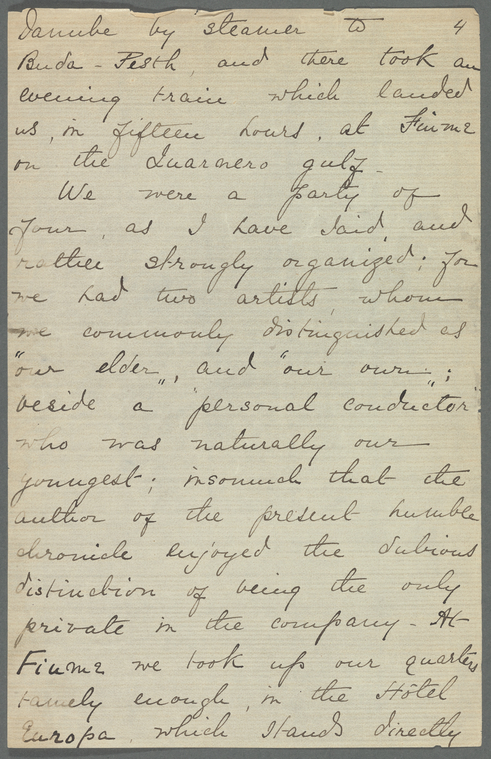 Danube by steamer to 4
Buda-Pesth, and there took an
evening train which landed
us, in fifteen hours, at Fiume
on the Quarnero gulf.
We were a party of
four, as I have said, and
rather strongly organized; for
we had two artists, whom
we commonly distinguished as
"our elder", and "our own";
beside a "personal conductor".
who was naturally our
youngest; insomuch that the
author of the present humble
chronicle enjoyed the dubious
distinction of being the only
private in the company - At
Fiume we took up our quarters
tamely enough, in the Hôtel
Europa, which stands directly